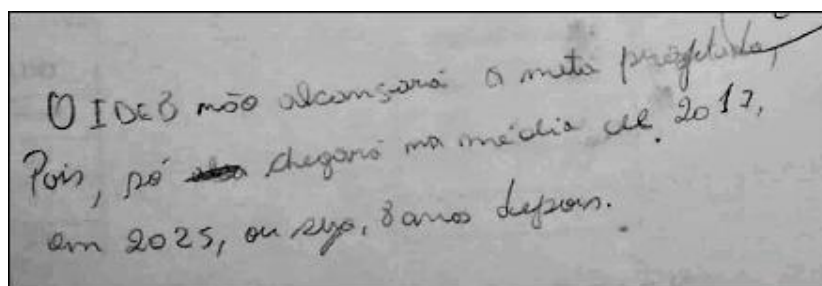 O IDEB não alcançará a meta projetada,
Pois, só chegará na média de 2017,
em 2025, ou seja, 8 anos depois.